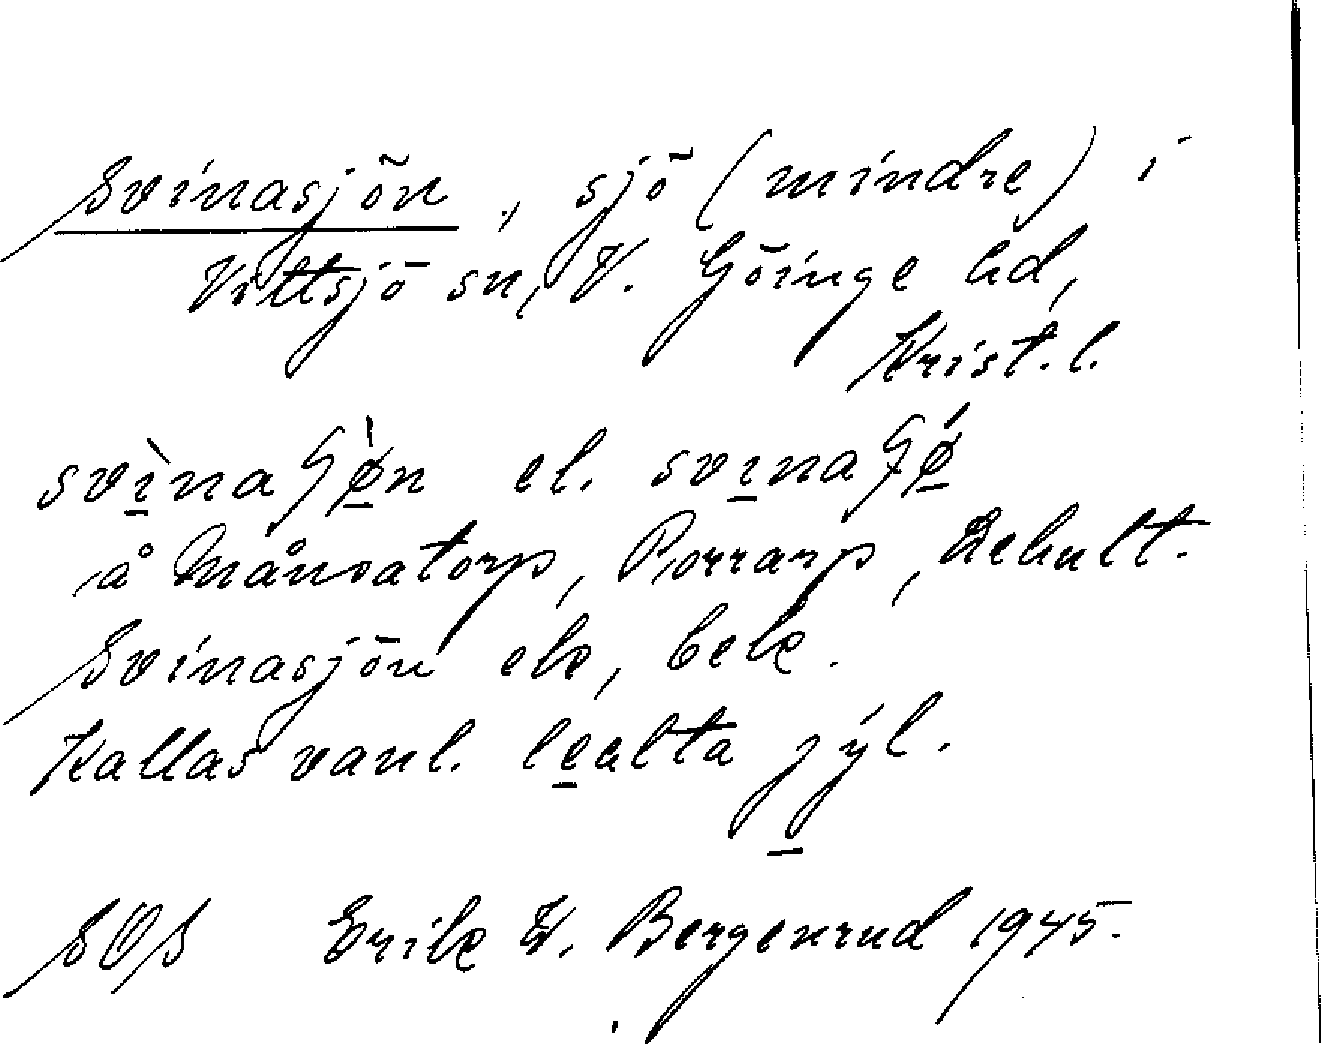 Svinasjön, sjö (mindre) i
Vittsjö sn, V. Göinge hd,
Krist. l.
svìnaʃø̀n el. svinaʃǿ
å Månsatorp, Porrarp, Dehult.
Svinasjön ek, bek.
Kallas vanl. lealta jýl.
SOS Erik W. Bergenrud 1945.